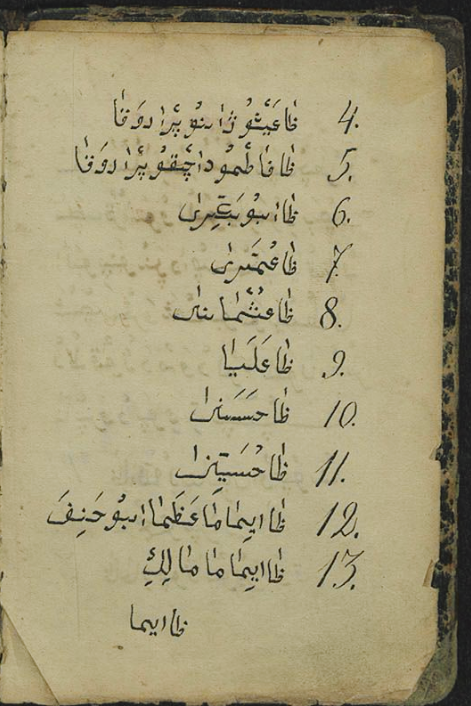 4. ظاعَيْشُوُ ژاىنوُ پرَاروَقا
5. ظافاطْمُو داچْقوُ پرَاروَقا
6. ظاابوُبَقِيرا
7. ظاعُمَرا
8. ظاعُثْمانا
9. ظاعَلَيا
10. ظاحَسَنا
11. ظاحُسَيِنا
12. ظاايماماعَظَما ابوُحَنِفَ
13. ظاايماما مالِكِ
ظاايما